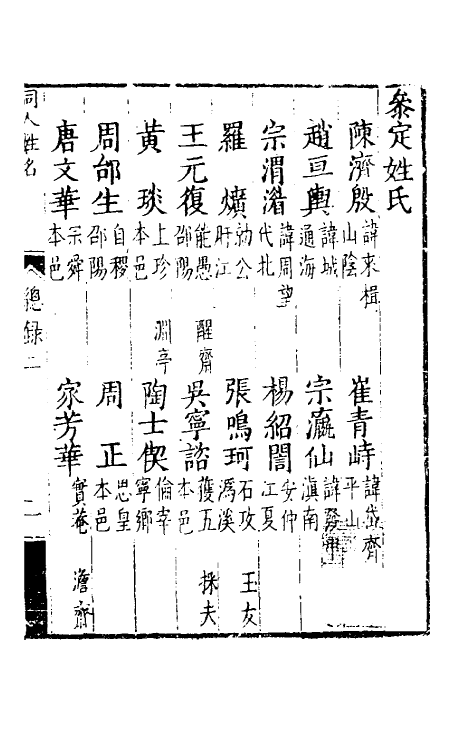 叅定姓氏
陳濟殷 諱來楫 山陰
崔青峙 諱岱齊 平山
趙亘輿 諱城 通海
宗瀛仙 諱發 滇南
宗渭濱 諱周望 代北
楊紹誾 安仲 江夏
羅爌 幼公 盱江
張鳴珂 石攻 溈溪 玉友
王元復 能愚 邵陽 醒齋
吳寧諮 獲五 本邑 採夫
黃琰 上珍 本邑 淵亭
陶士偰 倫宰 寧鄉
周邰生 自稷 邵陽
周正 思皇 本邑
唐文華 示舜 本邑
家芳華 實菴 澹齋
同人姓名
總錄二